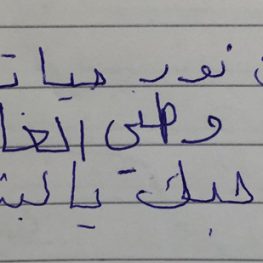 نور حيات
وطني الغا
حبك يا لبن